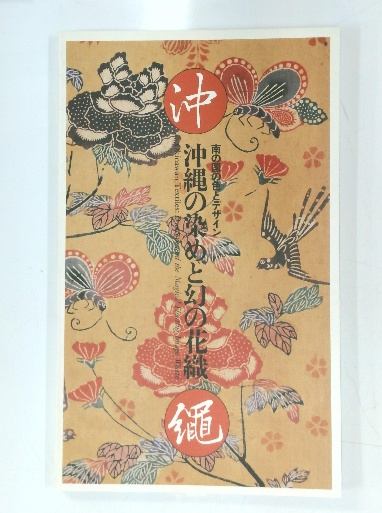 沖
南の国の色とデザイン
沖縄の染めと幻の花織
Okinawan Textiles: the Magic
繩